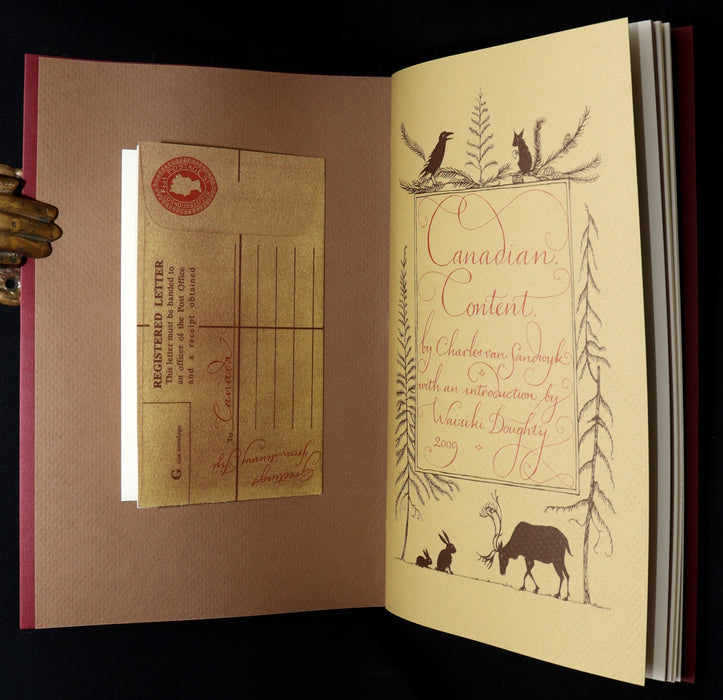 FIJI POSTAGE
REGISTRATION
REGISTERED LETTER
This letter must be handed to
an officer of the Post Office
and a receipt obtained
To Canada
G size envelope
Greetings
from sunny Fiji
Canadian
Content.
by Charles van Sandwyk
with an introduction by
Waisiki Doughty.
2009